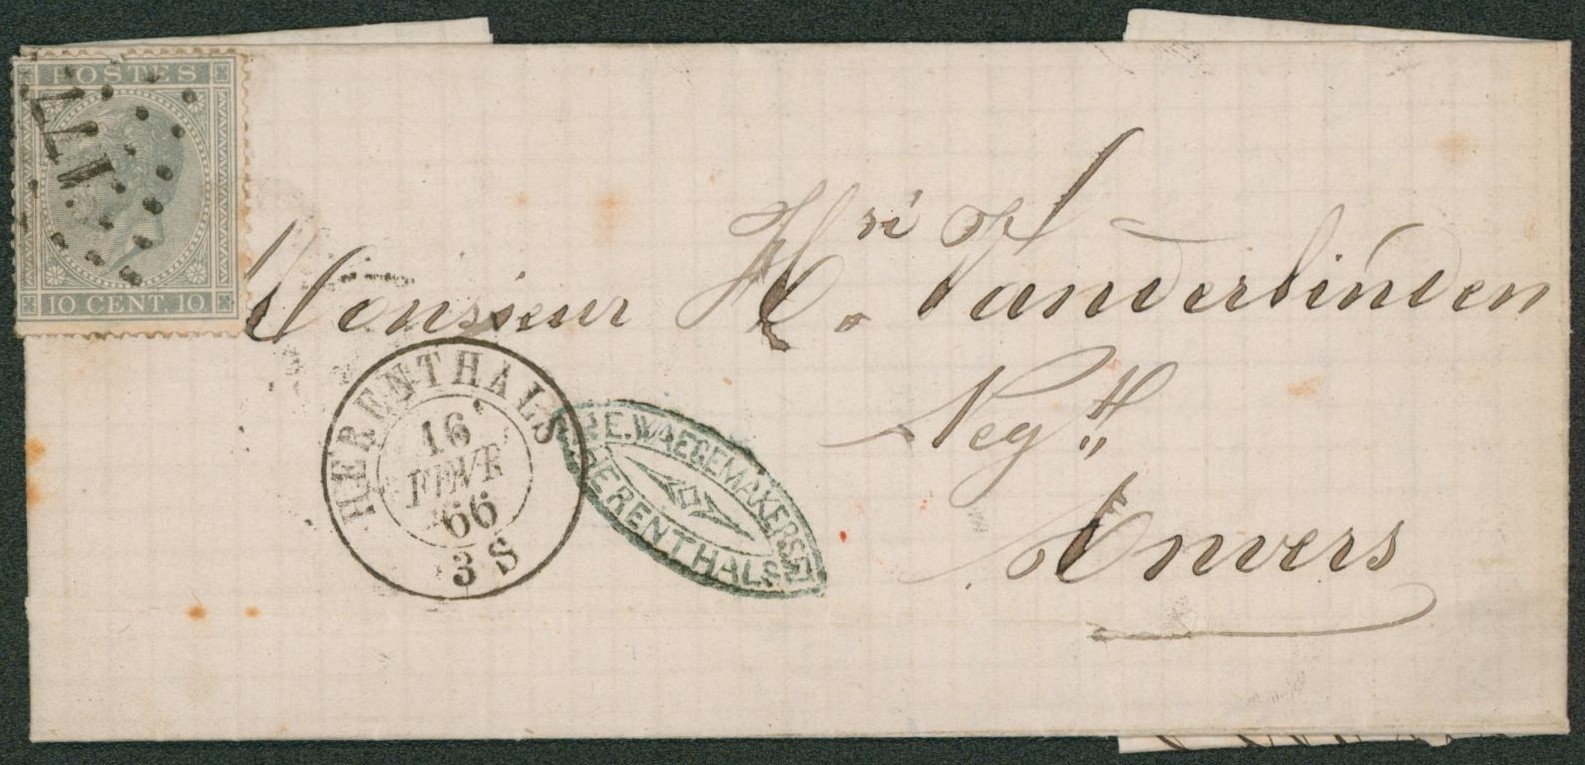 POSTES
177
10 CENT. 10
Monsieur Hri Vanderlinden
Negt
Anvers
HERENTHALS
16
FEVR
66
3 S
E. WAEGEMAKERS
HERENTHALS